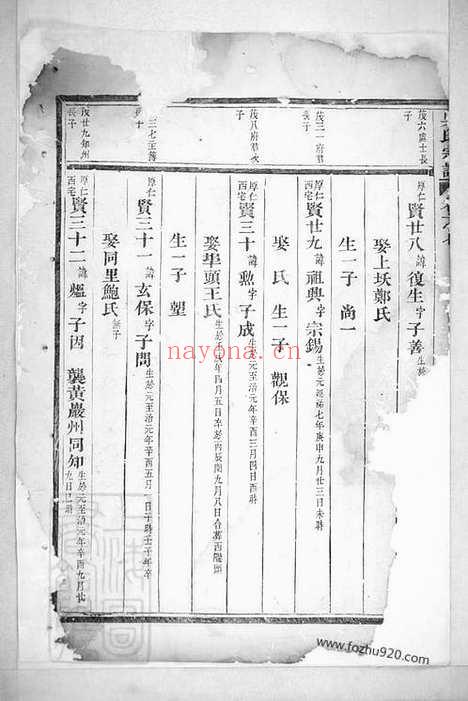 氏宗譜
茂六處士長
子
厚仁
西宅
賢廿八諱復生字子善生於
娶上坑鄭氏
生一子 尚一
茂三一府君
長子
厚仁
西宅
賢廿九諱祖興字宗錫生於元延祐七年庚申九月廿三日未時
娶 氏 生一子 觀保
茂八府君次
子
厚仁
西宅
賢三十諱勲字子成生於元至治元年辛酉三月四日酉時
娶毕頭王氏
生一子 堃
三七主簿
子
厚仁
賢三十一諱玄保字子問生於元至治元年辛酉五月
娶同里鮑氏無子
茂廿九知州
長子
厚仁
西宅
賢三十二諱熅字子因 襲黃巖州同知生於元至治元年辛酉九月廿
nayona.cn
www.fozhu920.com